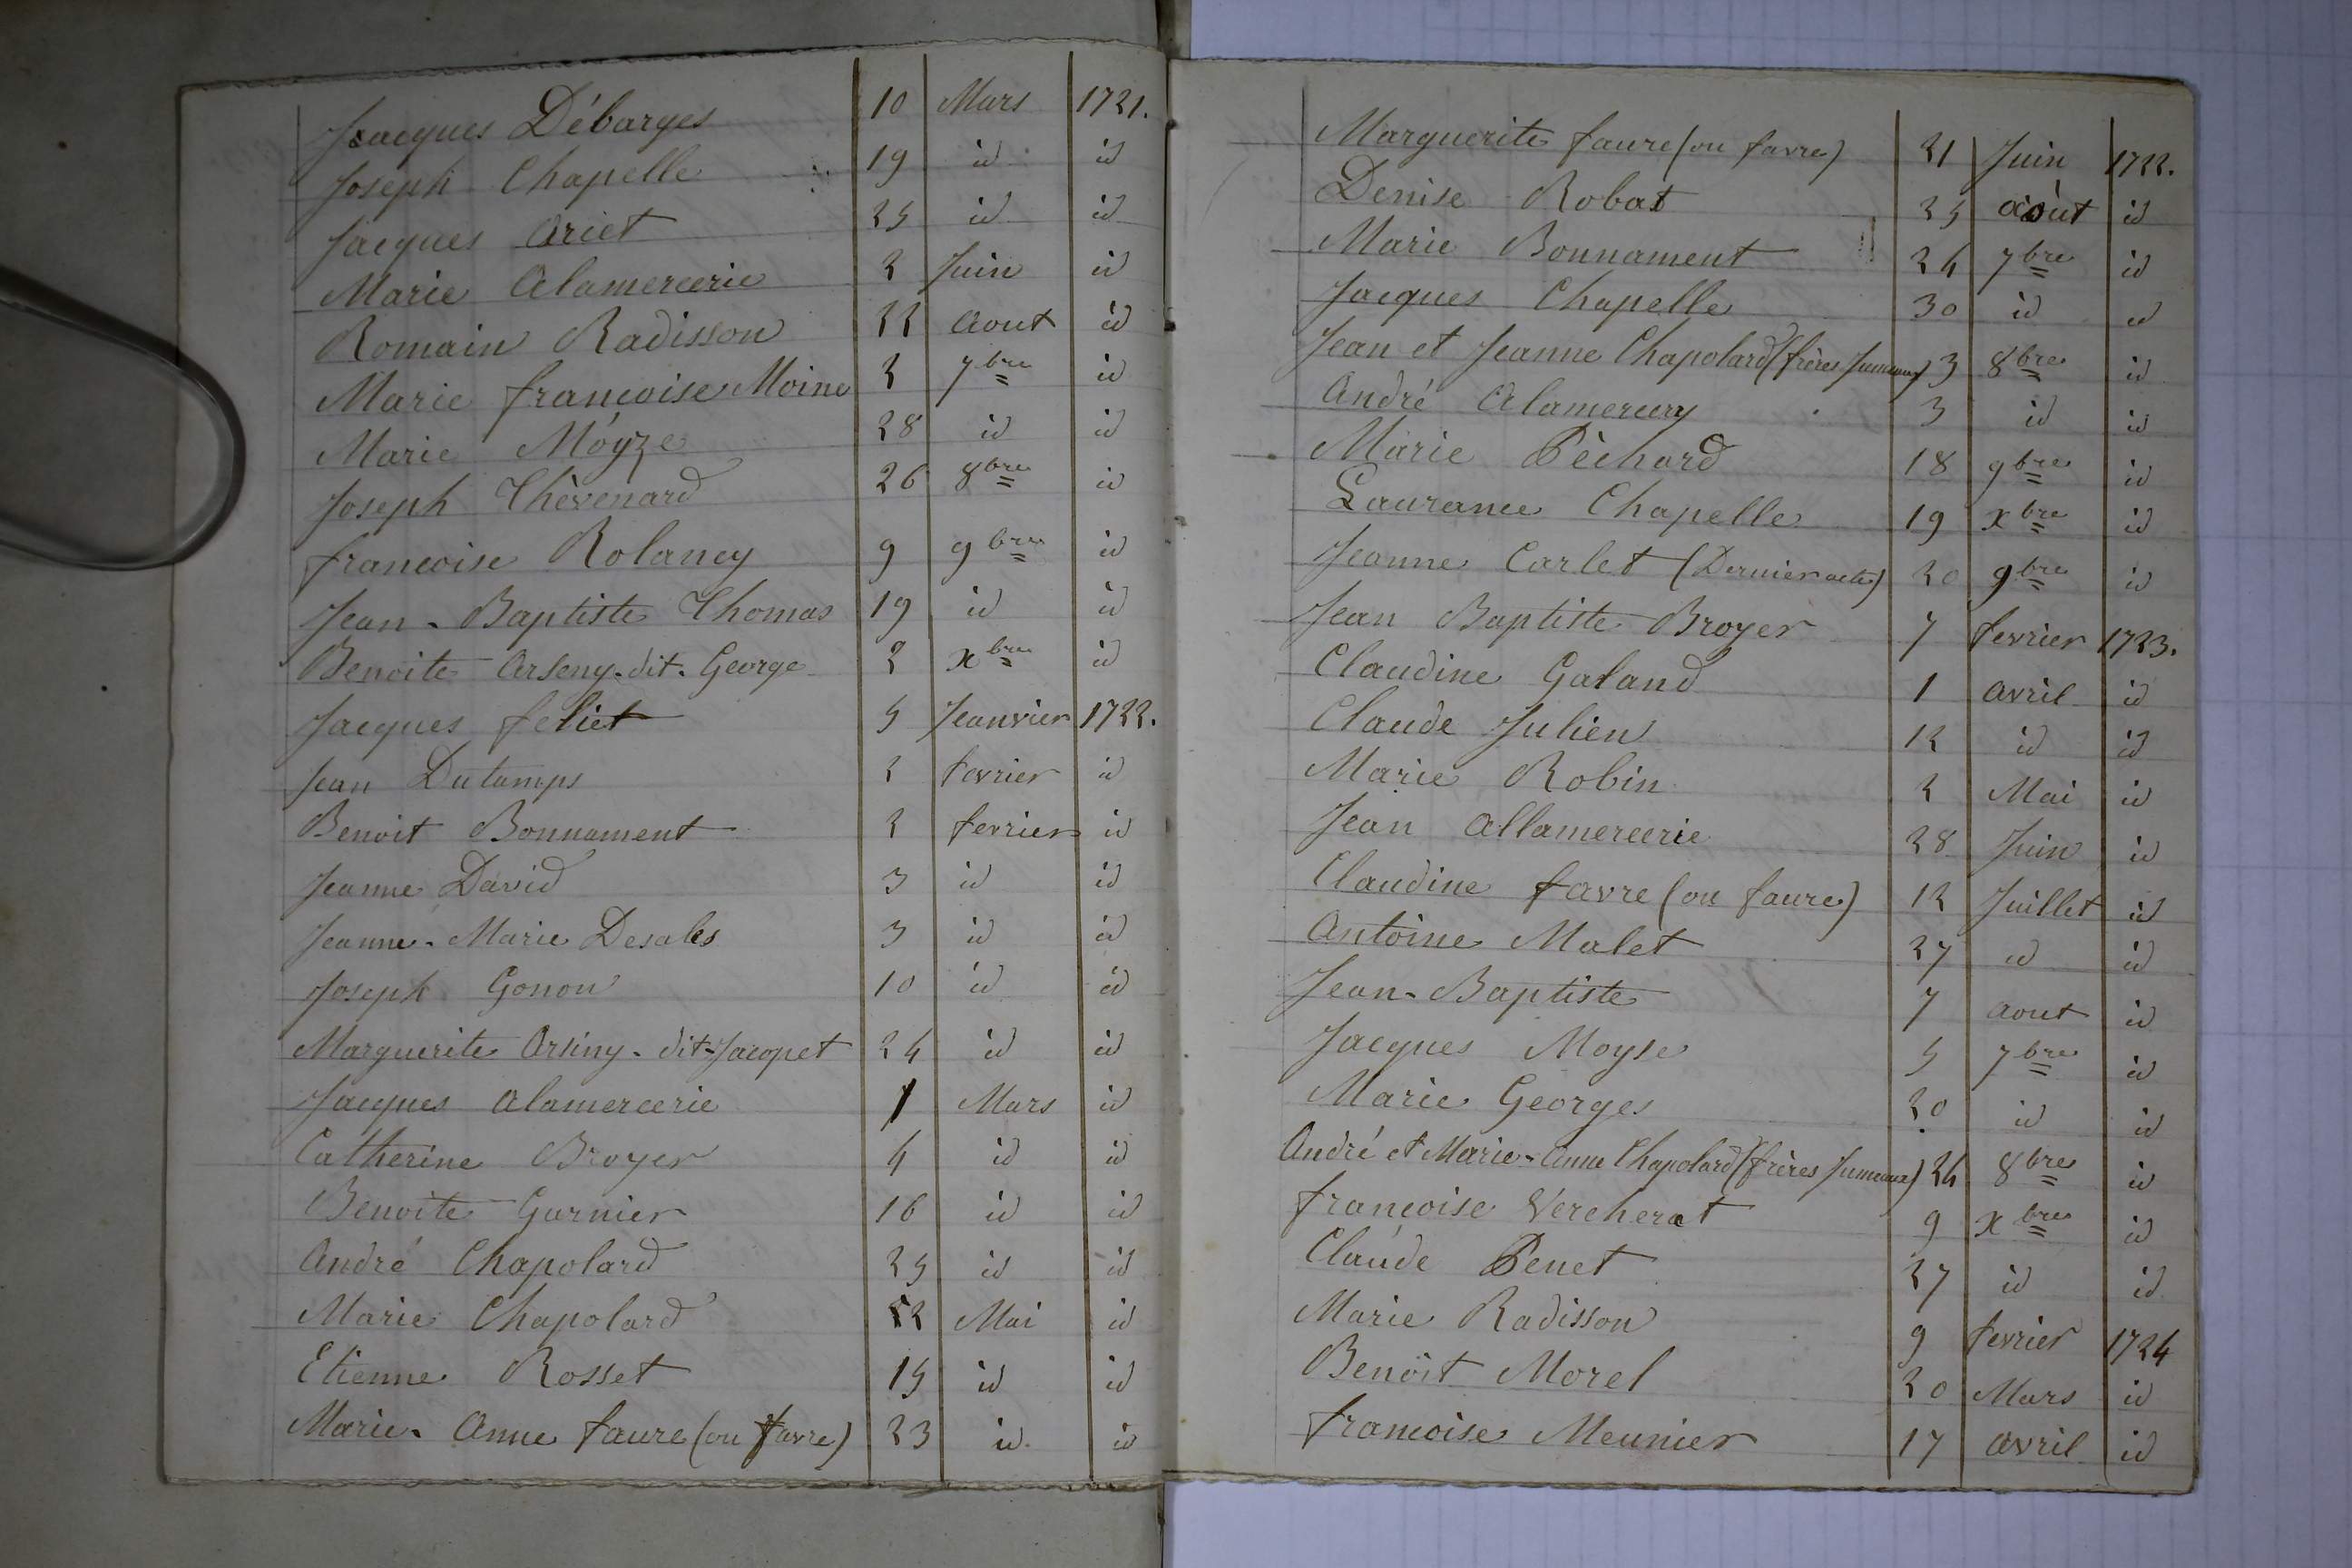 Jacques Débarges 10 Mars 1721.
Joseph Chapelle 19 id id
Jacques Ariet 25 id id
Marie Alamercerie 2 Juin id
Romain Radisson 22 Aout id
Marie françoise Moine 2 7bre id
Marie Móyze 28 id id
Joseph Thèvenard 26 8bre id
francoise Rolancy 9 9bre id
Jean-Baptiste Thomas 19 id id
Benoite Arseny-dit-George 2 xbre id
Jacques feliet 5 Jeanvier 1722.
Jean Dutamps 2 fevrier id
Benoit Bonnament 2 fevrier id
Jeanne David 3 id id
Jeanne-Marie Desales 3 id id
Joseph Gonon 10 id id
Marguerite Arsiny-dit-Jacopet 24 id id
Jacques Alamercerie 1 Mars id
Catherine Broyer 4 id id
Benoite Garnier 16 id id
André Chapolard 25 id id
Marie Chapolard 12 Mai id
Etienne Rosset 15 id id
Marie-Anne faure (ou favre) 23 id id
Marguerite faure (ou favre) 21 Juin 1722.
Denise Robat 25 août id
Marie Bonnament 24 7bre id
Jacques Chapelle 30 id id
Jean et Jeanne Chapolard (frères Jumeaux) 3 8bre id
André Alamercery 3 id id
Marie Pèchard 18 9bre id
Laurance Chapelle 19 xbre id
Jeanne Carlet (Dernier acte) 20 9bre id
Jean Baptiste Broyer 7 fevrier 1723.
Claudine Galand 1 avril id
Claude Julien 12 id id
Marie Robin 2 Mai id
Jean Allamercerie 28 Juin id
Claudine favre (ou faure) 12 Juillet id
Antoine Malet 27 id id
Jean-Baptiste 7 aout id
Jacques Moyse 5 7bre id
Marie Georges 20 id id
André et Marie-Anne Chapolard (frères Jumeaux) 24 8bre id
françoise Vercherat 9 xbre id
Claude Penet 27 id id
Marie Radisson 9 fevrier 1724
Benoît Morel 20 Mars id
francoise Meunier 17 avril id